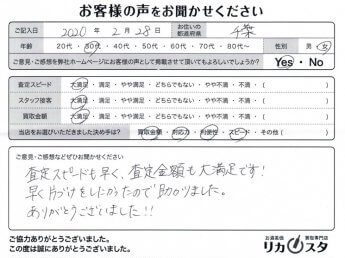 お客様の声をお聞かせください
ご記入日 2020年 2月 28日 お住いの都道府県 千葉
年齢 20代・30代・40代・50代・60代・70代・80代〜 性別 男・女
ご意見・ご感想を弊社ホームページにお客様の声として掲載させて頂いてもよろしいでしょうか? Yes・No
査定スピード 大満足・満足・やや満足・どちらでもない・やや不満・不満・( )
スタッフ接客 大満足・満足・やや満足・どちらでもない・やや不満・不満・( )
買取金額 大満足・満足・やや満足・どちらでもない・やや不満・不満・( )
当店をお選びいただきました決め手は? 買取金額・対応力・利便性・スピード・その他( )
ご意見・ご感想などぜひお聞かせください
査定スピードも早く、査定金額も大満足です!
早く片づけをしたかったので助かりました。
ありがとうございました!!
ご協力ありがとうございました。
この度は誠にありがとうございました。
お酒高価買取専門店
リカスタ